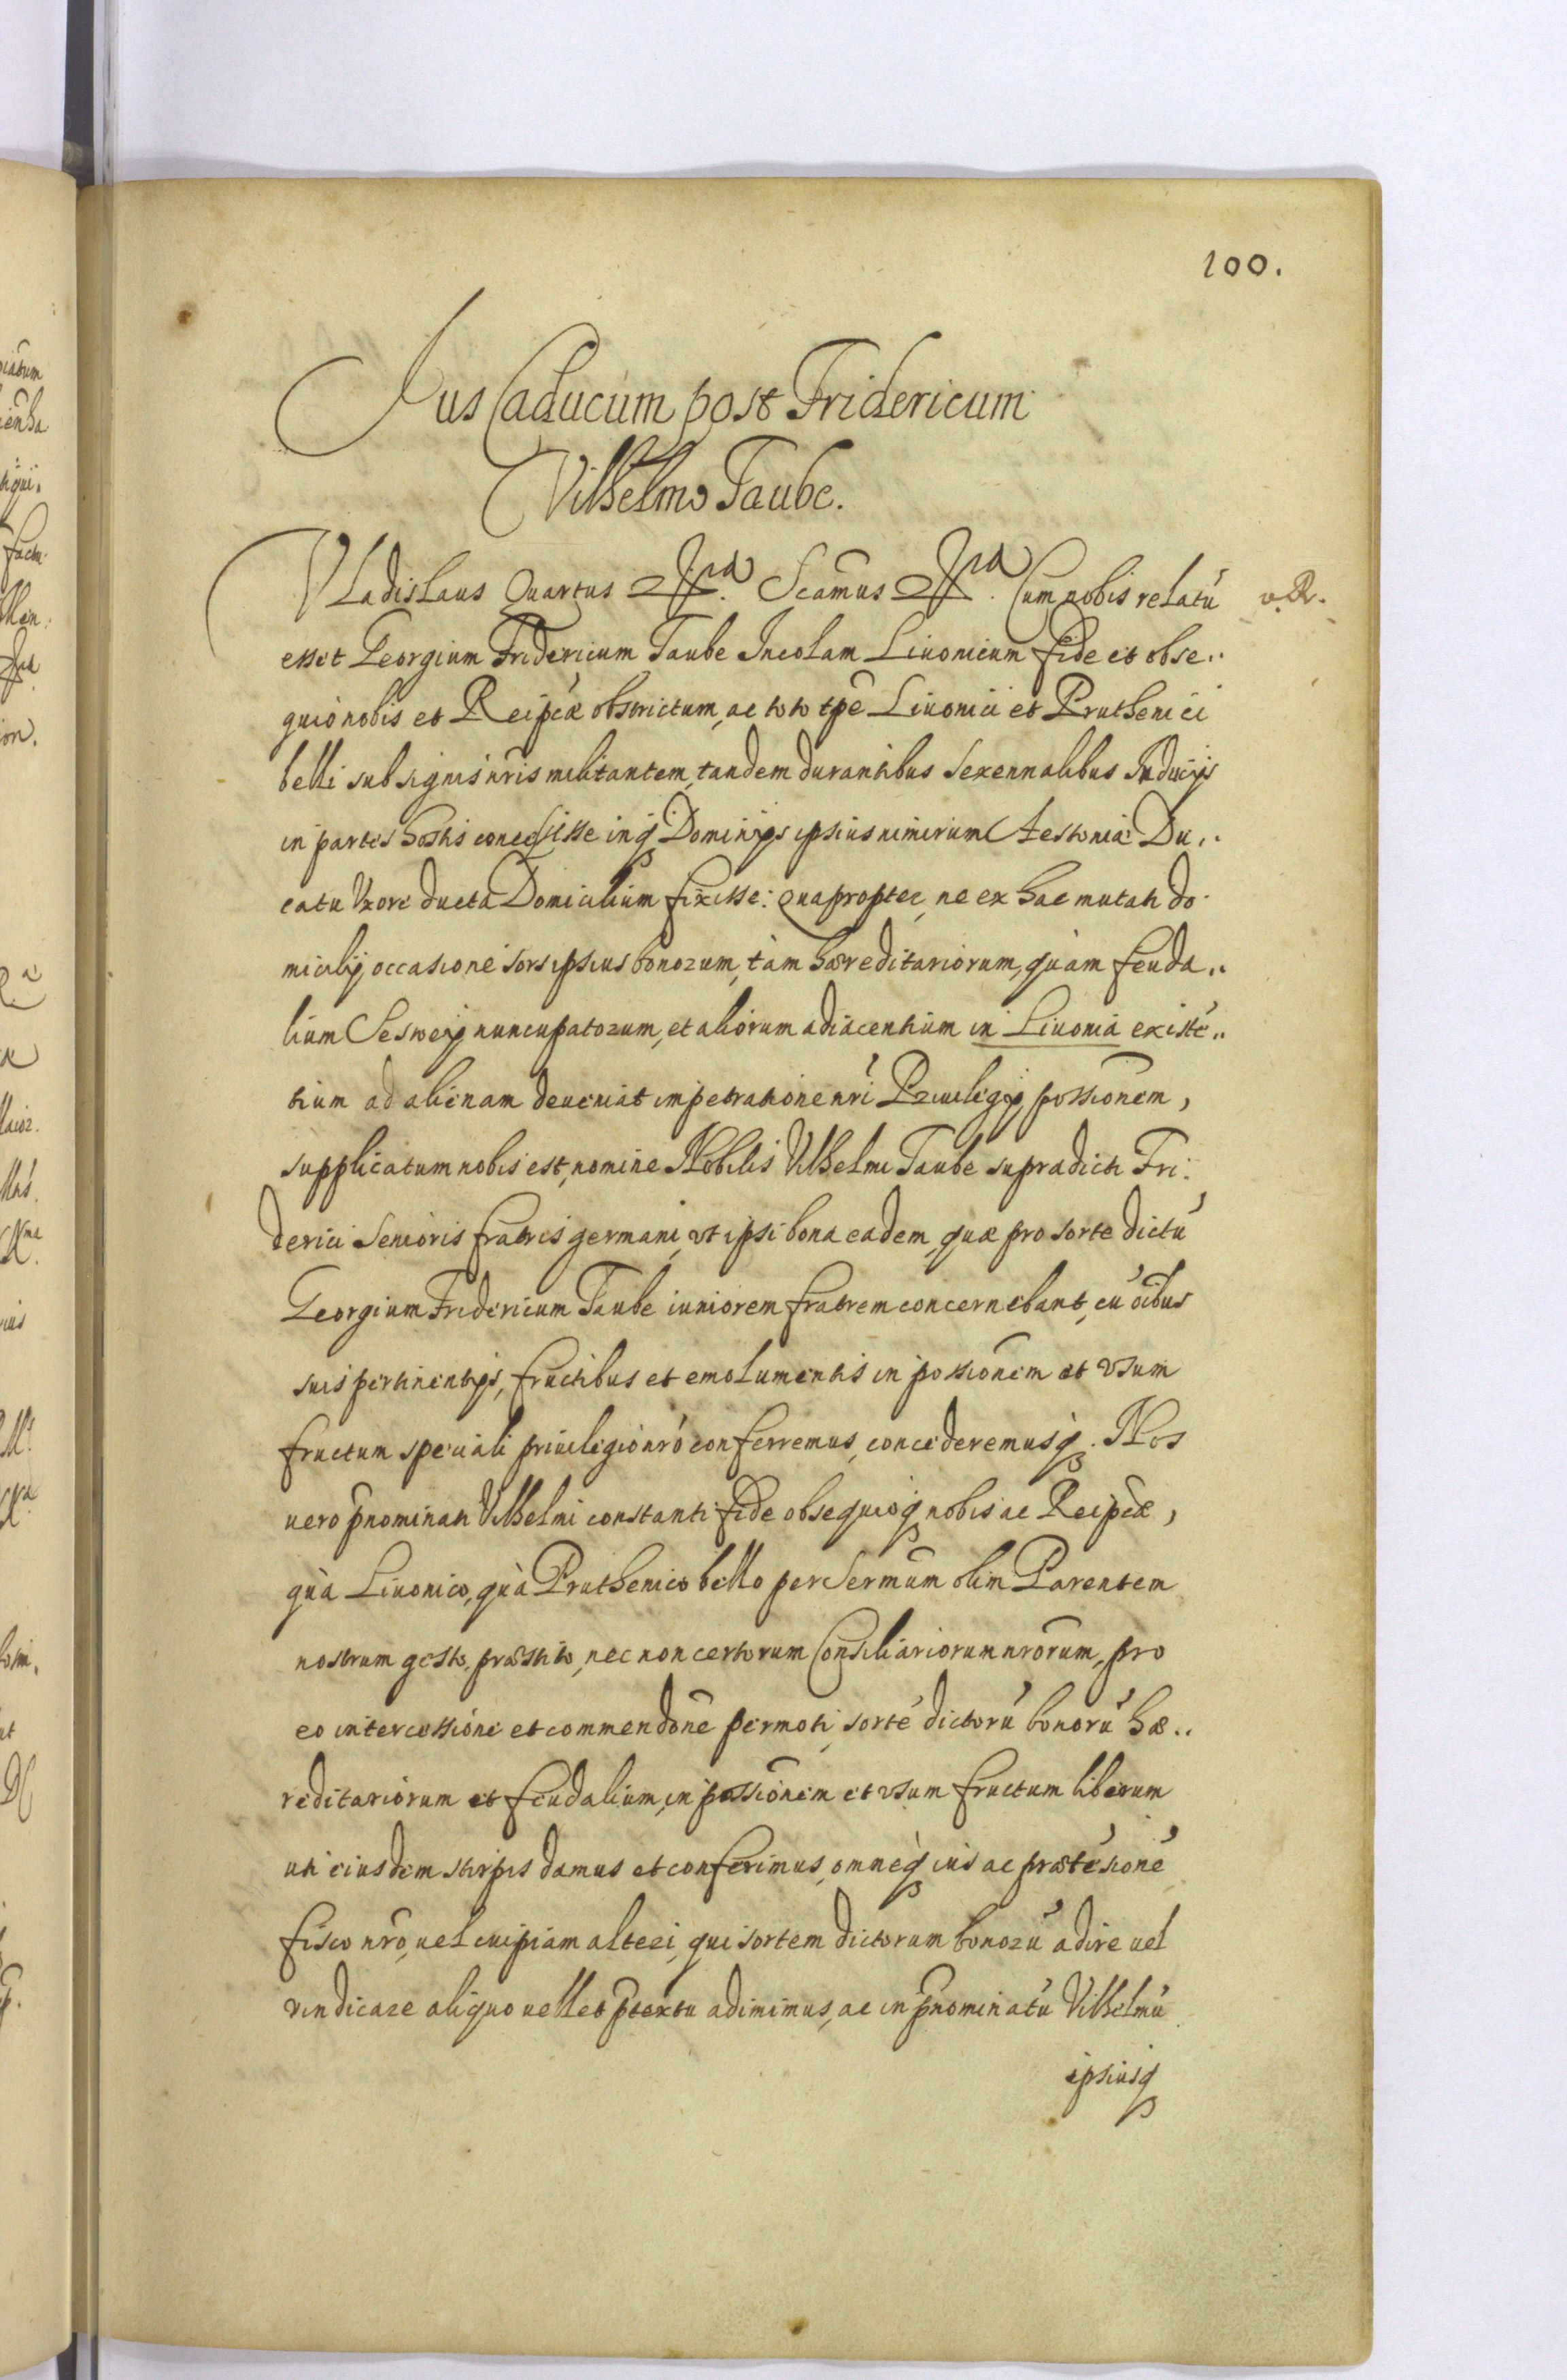 100.
Jus Caducum post Fridericum
Vilhelmo Taube.
Vladislaus Quartus Scãmus Cum nobis relatũ
esset Georgium Fridericum Taube Incolam Liuonicum fide et obse..
quiò nobis et Reipcæ obstrictum, ac toto tp̃e Liuonici et Pruthenici
belli sub signis nr̃is militantem, tandem durantibus sexennalibus Inducijs
in partes hostis concessisse inq Dominijs ipsius nimirum Aestoniæ Du..
catu Vxore ducta Domicilium fixisse: Quapropter, ne ex hac mutati do
micilij occasione sors ipsius bonorum, tàm hæreditariorum, quàm feuda..
lium Sesweij nuncupatorum, et aliorum adiacentium in Liuonia existẽ..
tium ad alienam deueniat impetratione nr̃i Priuilegij possionem,
supplicatum nobis est, nomine Nobilis Vilhelmi Taube supradicti Fri.
derici Senioris fratris germani, vt ipsi bona eadem, quæ pro sorte dictũ
Georgium Fridericum Taube iuniorem fratrem concernebant, cũ oĩbus
suis pertinentijs, fructibus et emolumentis in possionem et vsum
fructum speciali priuilegio nr̃o conferremus, concederemusq. Nos
uero p̃nominati Vilhelmi constanti fide obsequioq nobis ac Reipcæ,
quà Liuonico, quà Pruthenico bello per Sermũm olim Parentem
nostrum gesto, præstito, nec non certorum Consiliariorum nr̃orum, pro
eo intercessione et commendõne permoti, sortẽ dictorũ bonorũ hæ..
reditariorum et feudalium, in possionem et vsum fructum liberum
uti eiusdem stirpis damus et conferimus, omneq ius ac prætẽsionẽ
fisco nr̃o, uel cuipiam alteri, qui sortem dictorum bonorũ adire uel
vindicare aliquo uellet p̃textu adimimus, ac in p̃nominatũ Vilhelmũ
ipsiusq